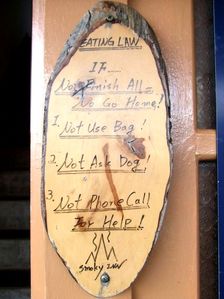 EATING LAW
IF.....
Not Finish All
No Go Home!
1. Not Use Bag!
2. Not Ask Dog!
3. Not Phone Call
For Help!
Smoky INN